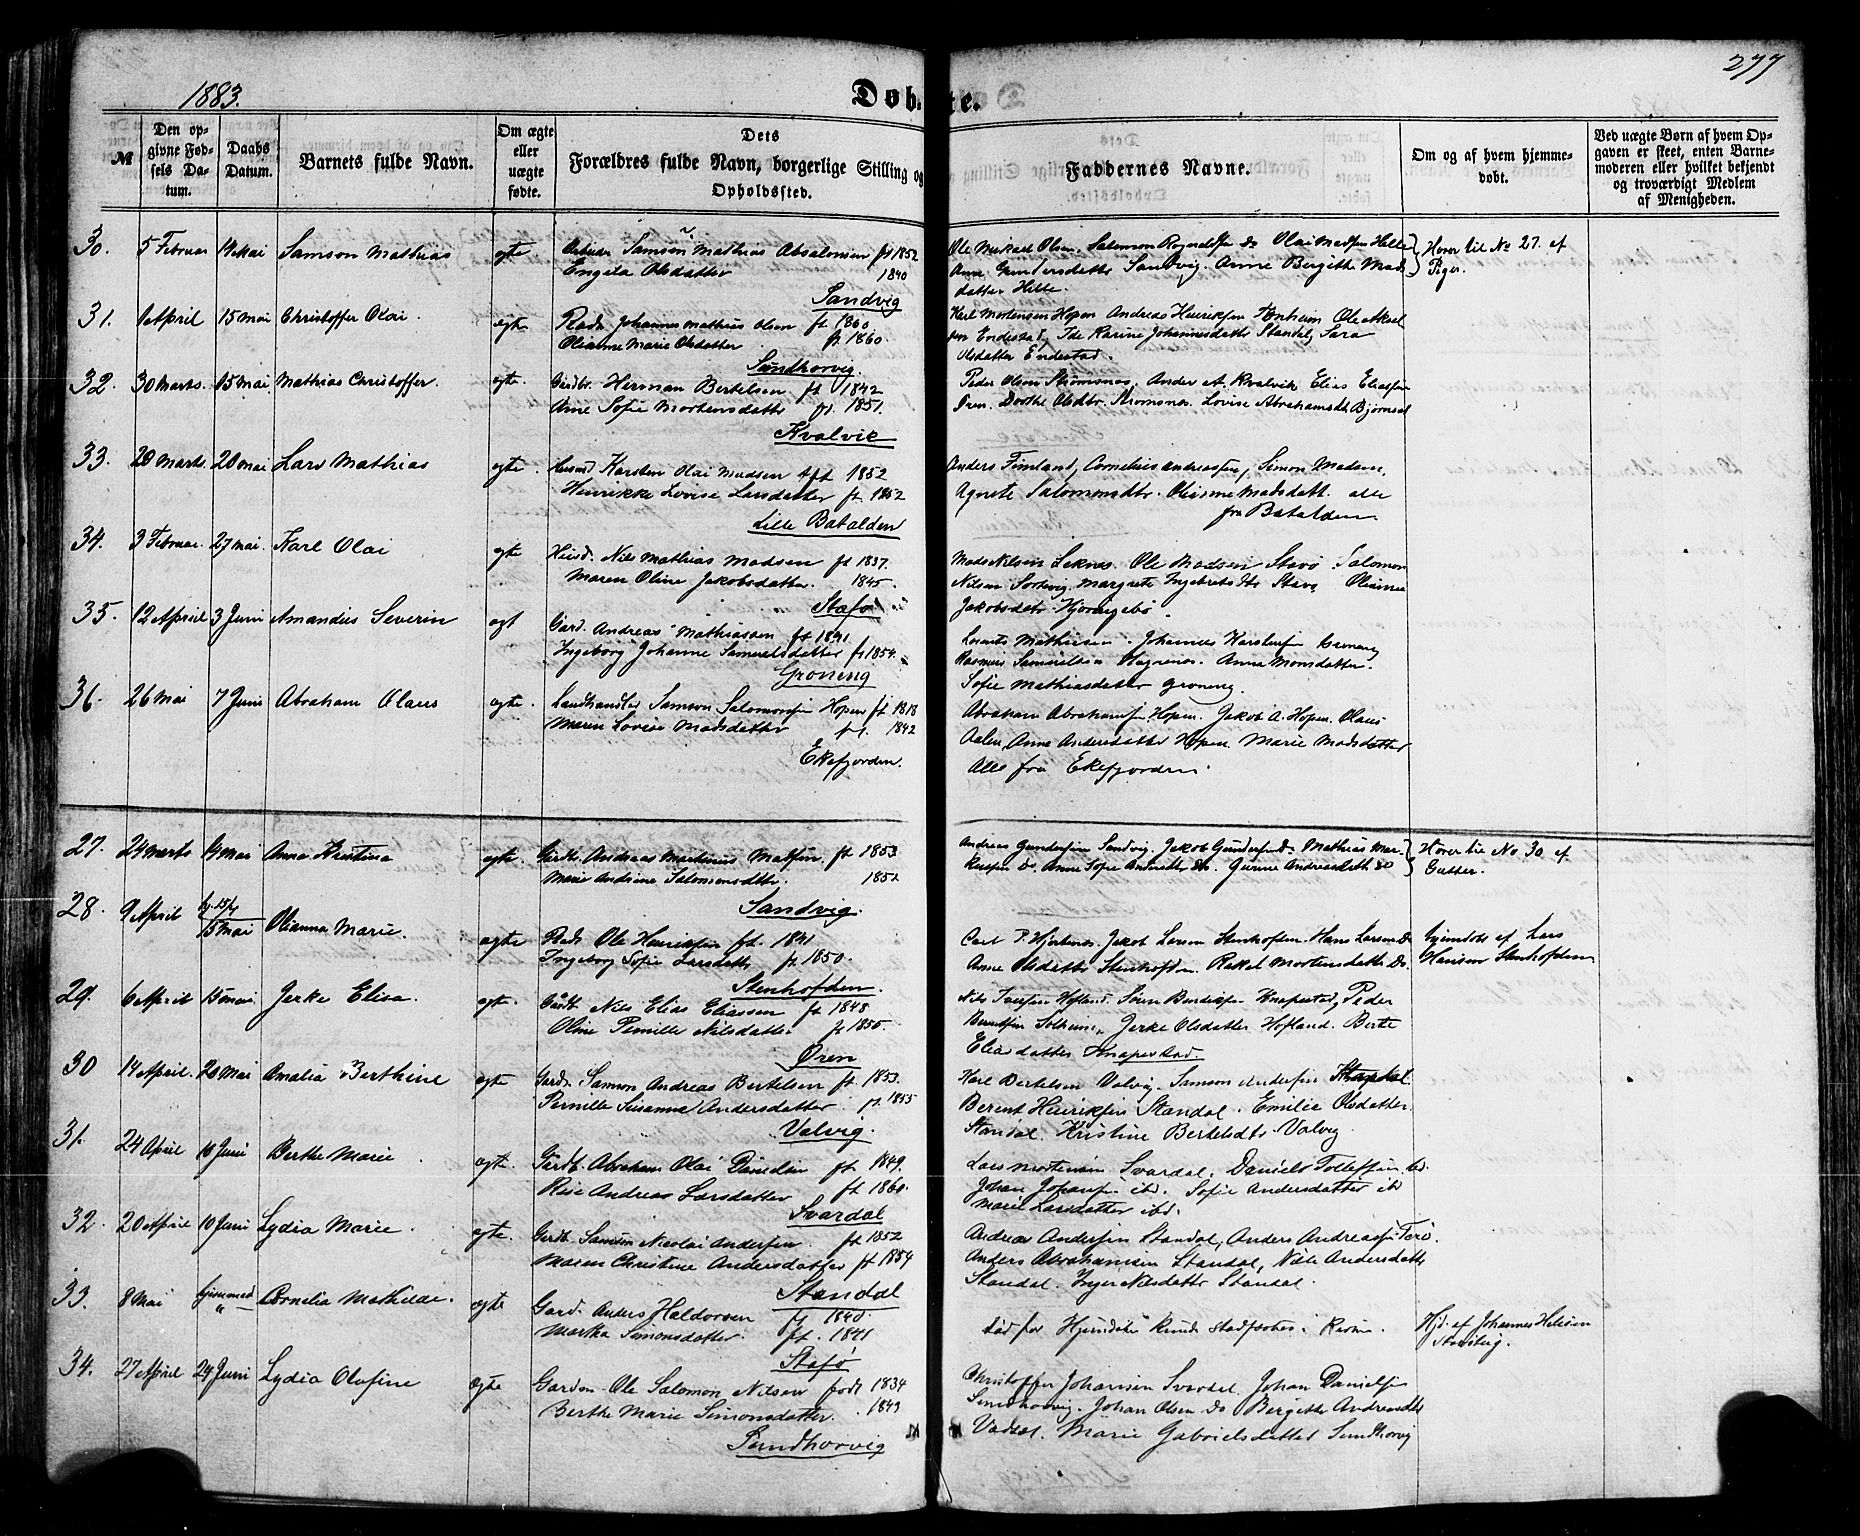 277
1883.
Døbte.
№
Den opgivne Fødsels Datum.
Daabs Datum.
Barnets fulde Navn.
Om ægte eller uægte fødte.
Dets Forældres fulde Navn, borgerlige Stilling og Opholdssted.
Faddernes Navne.
Om og af hvem hjemmedøbt.
Ved uægte Børn af hvem Opgaven er skeet, enten Barnemoderen eller hvilket bekjendt og troværdigt Medlem af Menigheden.
30. 5 Februar 14 Mai Samson Mathias ægte Samson Mathias Absalonsen ft 1852
Engela Olsdatter 1840
Sandvig
Ole Mikael Olsen, Salomon Do Olai Madsen Helle
Anne Gundersdatter Sandvig. Anne Bergitte Mads
datter Helle
Hører til No 27. af
Piger.
31. 1 April 15 Mai Christoffer Olai. ægte Johannes Mathias Olsen ft 1860
Olianne Marie Olsdatter ft 1860.
Sundhorvig.
Karl Mortensen Hopen Andreas Henriksen Ole Aksel
sen Endestad, Ida Karine Johannesdatter Standal, Sara
Olsdatter Endestad.
32. 30 Marts. 15 Mai Mathias Christoffer. ægte. Gårdbr. Herman Bertelsen ft 1842
Anne Sofie Mortensdatter ft. 1851.
Kvalvik
Peder Olsen Strømsnes, Anders A. Kvalvik Elias Eliassen
Øren. Dorthe Olsdtr. Strømsnes. Lovise Abrahamsdt Bjørnset
33. 20 Marts. 20 Mai Lars Mathias ægte. Husmd Karsten Olai Madsen ft 1852
Henrikke Lovise Larsdatter ft. 1852
Lille Batalden
Anders Finland, Cornelius Andreassen, Simon Madsen,
Agnete Salomonsdtr. Olianne Madsdatt. alle
fra Batalden.
34. 3 Februar. 27 Mai. Karl Olai ægte Husmd. Nils Mathias Madsen ft 1837.
Maren Oline Jakobsdatter. 1845.
Stafø
Mads Nilsen Leknes. Ole Madsen Stavø Salomon
Nilsen Margrete Ingebrets Stavø, Olianne
Jakobsdatr. Hjøringebø.
35. 12 April 3 Juni Amandus Severin ægt Gard. Andreas Mathiassen ft 1841
Ingeborg Johanne Samuelsdatter ft 1854.
Grøneng
Mathiesen. Johannes Karstensen Grøneng
Rasmus Samuelsen Anne Monsdatter.
Sofie Mathiasdatter Grøneng.
36. 26 Mai 7 Juni Abraham Olaus ægte. Landhandler Samson Salomonsen Hopen ft 1818
Maren Lovise Madsdatter ft. 1842
Ekefjorden.
Abraham Abrahamsen Hopen. Jakob A. Hopen. Olaus
Aalen, Anne Andersdatter Hopen. Marie Madsdatter
Alle fra Ekefjorden.
27. 24 Marts 14 Mai Anna Kristina ægte. Gårdb. Andreas Martinus Madsen. ft 1853
Marie Andrine Salomonsdtr. 1852
Sandvig.
Andreas Gundersen Sandvig. Jakob Gundersen Do. Mathias Mar-
kussen Do. Anne Sofie Do. Gurine Andreasdatt Do
Hører til No 30 af
Gutter.
28. 9 April hj. 15/4
15 Mai Olianna Marie. ægte Ole Henriksen ft. 1841
Ingeborg Sofie Larsdatter ft 1850.
Stenhofden.
Carl P. Hjertenes. Jakob Larsen Stenhofden. Hans Larsen Do
Anne Olsdatter Stenhofden. Rakel Mortensdatter Do.
Hjemdøbt af Lars
Hansen Stenhofden
29. 6 April 15 Mai Jerke Elisa. ægte. Gårdb. Nils Elias Eliassen ft 1848
Oline Pernille Nilsdatter ft 1855.
Øren
Nils Iversen Hofland. Søren Bendiksen Knapestad, Peder
Berentsen Solheim. Jerke Olsdatter Hofland. Berte
Eliasdatter Knapestad.
30 14 April. 20 Mai Amalia Berthine ægte Gardr. Samson Andreas Bertelsen ft. 1853.
Pernille Susanna Andersdatter. ft. 1855
Valvig.
Karl Bertelsen Valvig. Samson Andersen Standal.
Berent Henriksen Standal. Emilie Olsdatter.
Standal. Kristine Bertelsdtr Valvig
31. 24 April 10 Juni Berthe Marie. ægte. Gårdb. Abraham Olai Danielsen ft. 1849.
Rise Andreas Larsdatter ft 1860.
Svardal
Lars Mortensen Svardal, Daniel Tollefsen ibd.
Johan Johansen ibd. Sofie Andersdatter ib
Marie Larsdatter ibd.
32. 20 April 10 Juni Lydia Marie. ægte. Gårdb. Samson Nicolai Andersen. ft 1852
Maren Christine Andersdatter ft 1854
Standal
Andreas Andersen Standal, Anders Andreassen Terø.
Anders Abrahamsen Standal, Andersdatter
Standal. Inger Nilsdatter Standal.
33. 8 Mai hjemmed. Cornelia Mathilde. ægte Gard. Anders Haldorsen ft 1840.
Martha Simonsdatter. ft. 1841
Stafø
død før Hjemdaaben kunde stadfæstes i Kirken.
Hjd. af Johannes Helsen
34. 27 April 24 Juni Lydia Olufine ægte Gardm. Ole Salomon Nilsen født 1834
Berthe Marie Simonsdatter. 1843
Sundhorvig
Christoffer Johansen Svardal. Johan Danielsen
Sundhorvig. Johan Olsen Do Bergitte Andreasdtr
Vadset. Marie Gabrielsdatter Sundhorvig